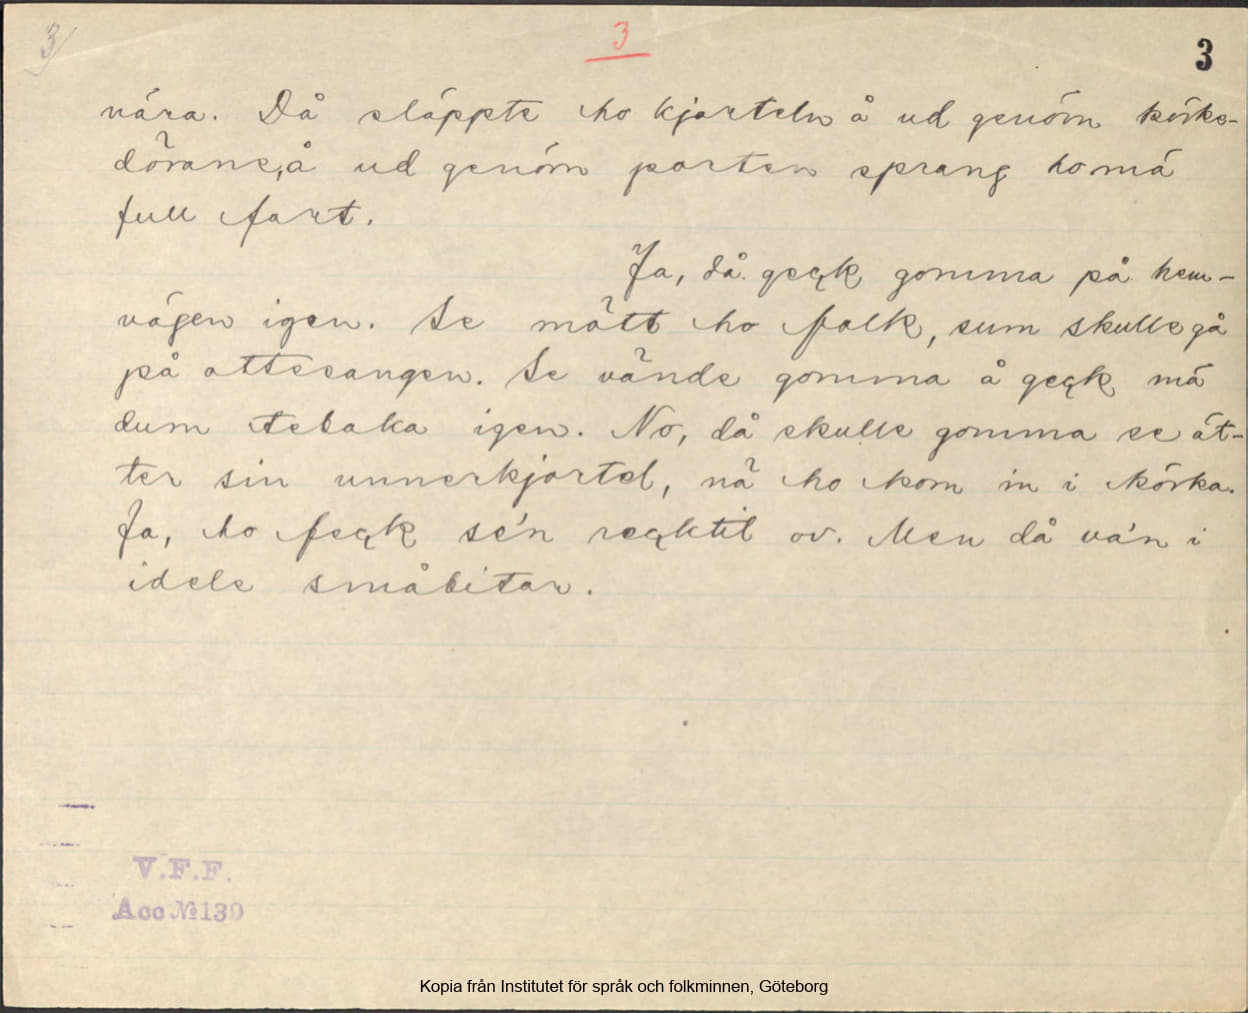 3
3
3
nára. Då släppte ho kjorteln å ud genóm kórke-
dörane, å ud genóm porten sprang ho má
full fart.
Ja, då geck gomma på hem-
vägen igen. Se mött ho folk, sum skulle gå
på ottesangen. Se vände gomma å geck má
dum tebaka igen. No, då skulle gomma se át-
ter sin unnerkjortel, nä ho kom in i kórka.
Ja, ho feck se'n recktit ov. Men då va'n i
idele småbitar.
V.F.F.
Acc № 139
Kopia från Institutet för språk och folkminnen, Göteborg